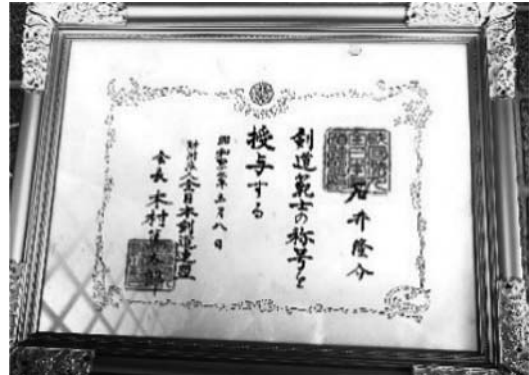 石井隆介
剣道範士の称号を
授与する
昭和 年五月八日
財団法人全日本剣道連盟
会長 木村篤太郎